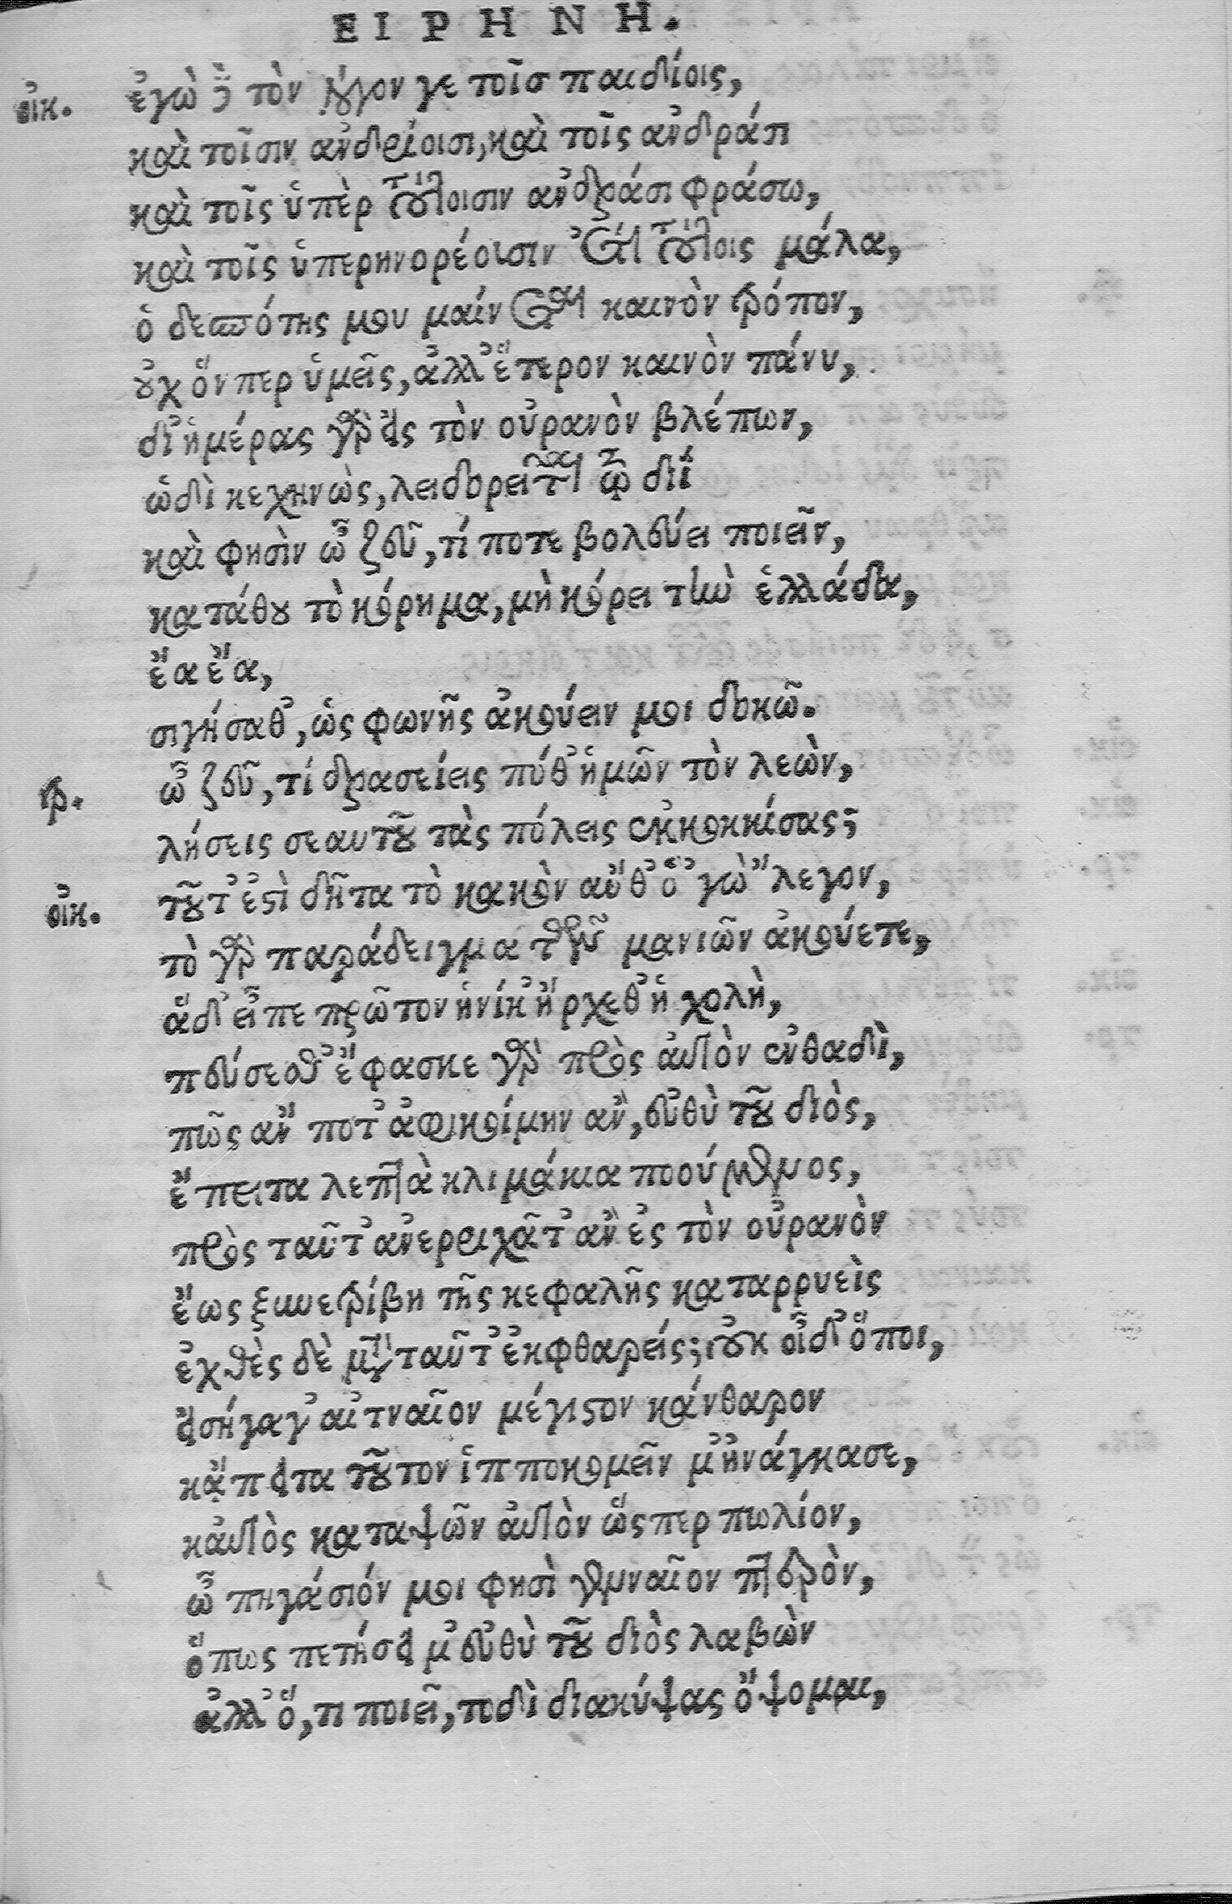 ΕΙΡΗΝΗ.
οἰκ. ἐγὼ δὲ τὸν λόγον γε τοῖσ παιδίοις,
καὶ τοῖσιν ἀνδρίοισι, καὶ τοῖς ἀνδράσι
καὶ τοῖς ὑπὲρ τούτοισιν ἀνδράσι φράσω,
καὶ τοῖς ὑπερηνορέοισιν ἔτι τούτοις μάλα,
ὁ δεσπότης μου μαίνεται καινὸν τρόπον,
οὐχ ὅνπερ ὑμεῖς, ἀλλ' ἕτερον καινὸν πάνυ,
δι' ἡμέρας γὰρ εἰς τὸν οὐρανὸν βλέπων,
ὡδὶ κεχηνὼς, λειδορεῖται τῷ διῒ
καὶ φησὶν ὦ ζεῦ, τί ποτε βολεύει ποιεῖν,
κατάθου τὸ κόρημα, μὴ κόρει τὴν ἑλλάδα,
ἔα ἔα,
σιγήσαθ', ὡς φωνῆς ἀκούειν μοι δοκῶ.
τρ. ὦ ζεῦ, τί δρασείεις πόθ' ἡμῶν τὸν λεὼν,
λήσεις σεαυτοῦ τὰς πόλεις ἐκκοκκίσας;
οἰκ. τοῦτ' ἐστὶ δῆτα τὸ κακὸν αὔθ' ὃ 'γὼ 'λεγον,
τὸ γὰρ παράδειγμα τῶν μανιῶν ἀκούετε,
ἃ δ' εἶπε πρῶτον ἡνίκ' ἤρχεθ' ἡ χολὴ,
πεύσεσθ' ἔφασκε γὰρ πρὸς αὑτὸν ἐνθαδὶ,
πῶς ἄν ποτ' ἀφικοίμην ἂν, εὐθὺ τοῦ διὸς,
ἔπειτα λεπτὰ κλιμάκια ποούμενος,
πρὸς ταῦτ' ἀνερριχᾶτ' ἂν ἐς τὸν οὐρανὸν
ἕως ξυνετρίβη τῆς κεφαλῆς καταρρυεὶς
ἐχθὲς δὲ μετὰ ταῦτ' ἐκφθαρείς; οὐκ οἶδ' ὅποι,
εἰσήγαγ' αἰτναῖον μέγιστον κάνθαρον
κἄπειτα τοῦτον ἱπποκομεῖν μ' ἠνάγκασε,
καὐτὸς καταψῶν αὐτὸν ὥςπερ πωλίον,
ὦ πηγάσιόν μοι φησὶ γενναῖον πτερὸν,
ὅπως πετήσει μ' εὐθὺ τοῦ διὸς λαβὼν
ἀλλ' ὅ, τι ποιεῖ, τοδὶ διακύψας ὄψομαι,